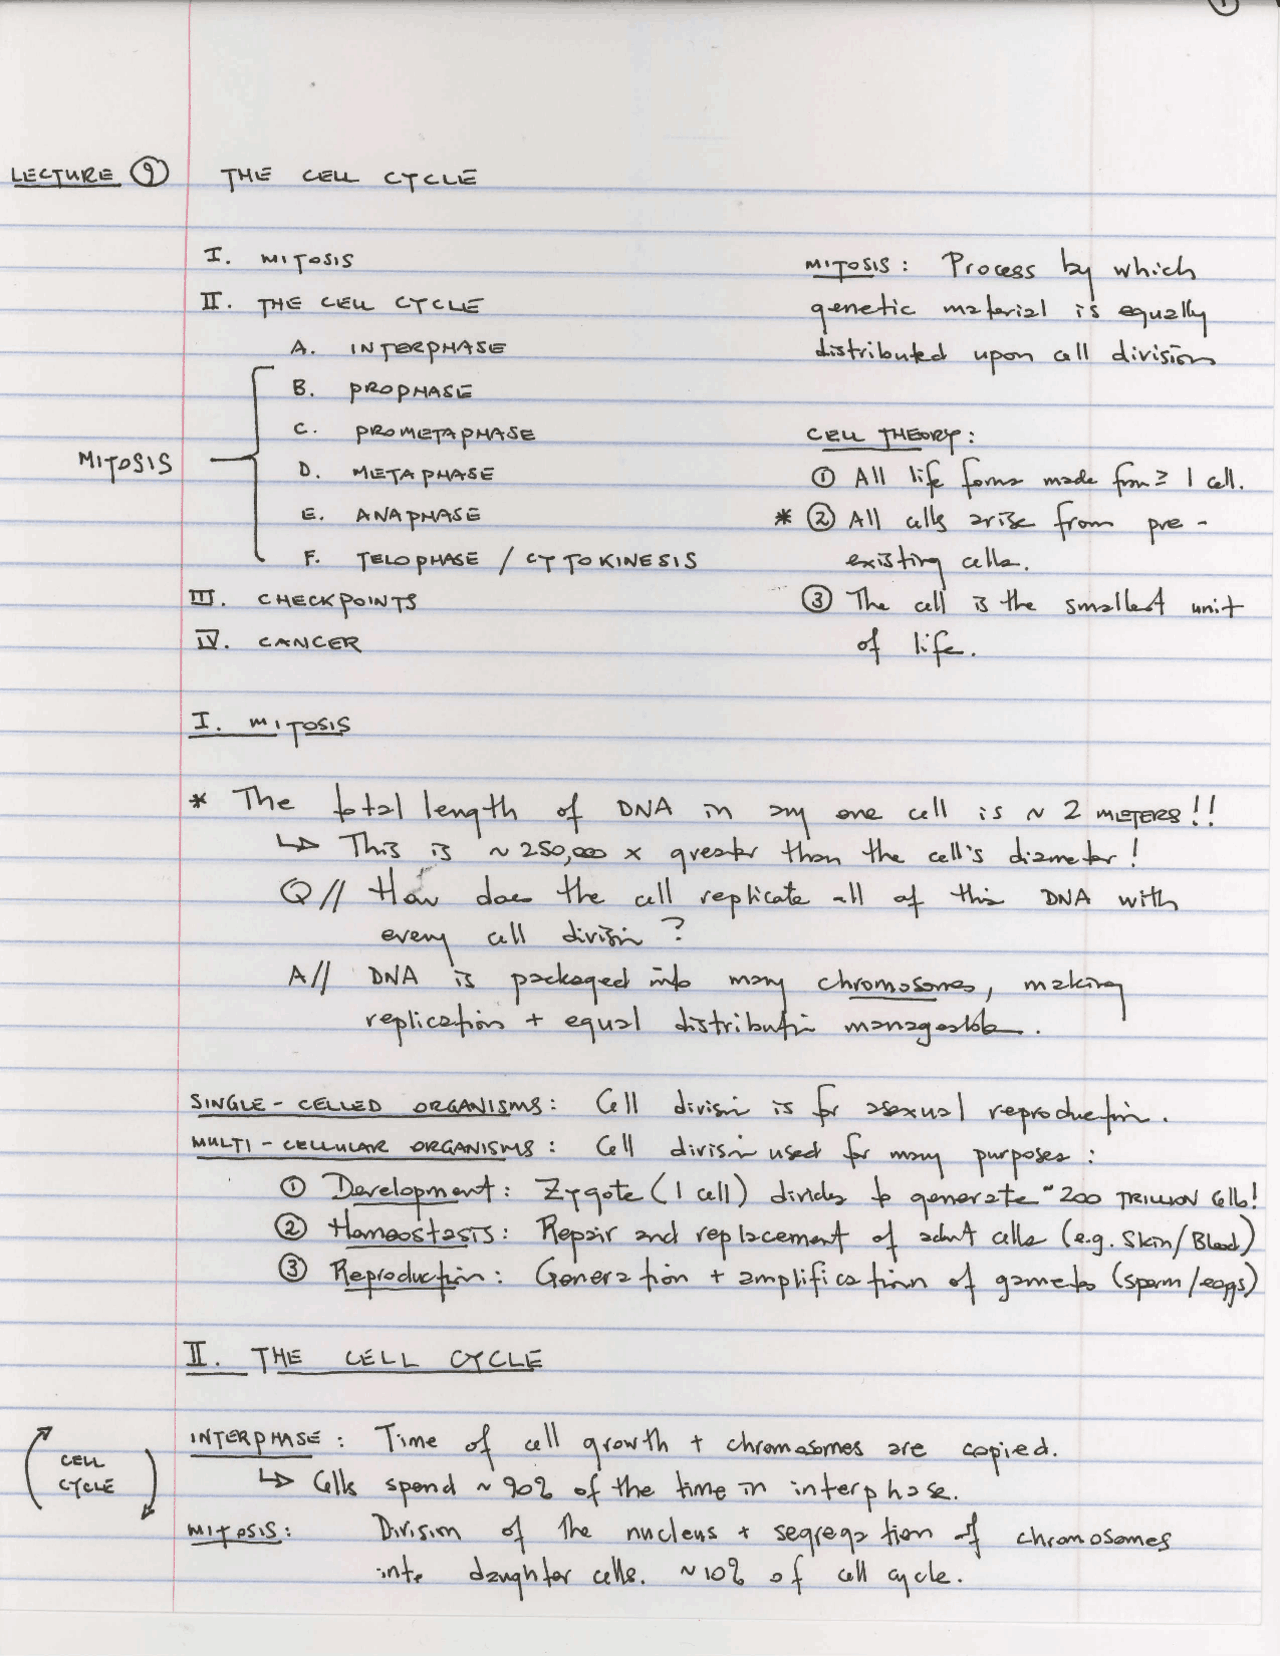 LECTURE 9 THE CELL CYCLE
I. MITOSIS
II. THE CELL CYCLE
A. INTERPHASE
B. PROPHASE
C. PROMETAPHASE
MITOSIS
D. METAPHASE
E. ANAPHASE
F. TELOPHASE / CYTOKINESIS
III. CHECKPOINTS
IV. CANCER
MITOSIS: Process by which
genetic material is equally
distributed upon cell division
CELL THEORY:
① All life forms made from ≥ 1 cell.
* ② All cells arise from pre-
existing cells.
③ The cell is the smallest unit
of life.
I. MITOSIS
* The total length of DNA in any one cell is ~ 2 METERS!!
↳ This is ~250,000 x greater than the cell's diameter!
Q// How does the cell replicate all of this DNA with
every cell division?
A// DNA is packaged into many chromosomes, making
replication + equal distribution manageable.
SINGLE-CELLED ORGANISMS: Cell division is for asexual reproduction.
MULTI-CELLULAR ORGANISMS: Cell division used for many purposes:
① Development: Zygote (1 cell) divides to generate ~200 TRILLION cells!
② Homeostasis: Repair and replacement of adult cells (e.g. Skin/Blood)
③ Reproduction: Generation + amplification of gametes (sperm/eggs)
II. THE CELL CYCLE
CELL
CYCLE
INTERPHASE: Time of cell growth + chromosomes are copied.
↳ Cells spend ~90% of the time in interphase.
MITOSIS: Division of the nucleus + segregation of chromosomes
into daughter cells. ~10% of cell cycle.